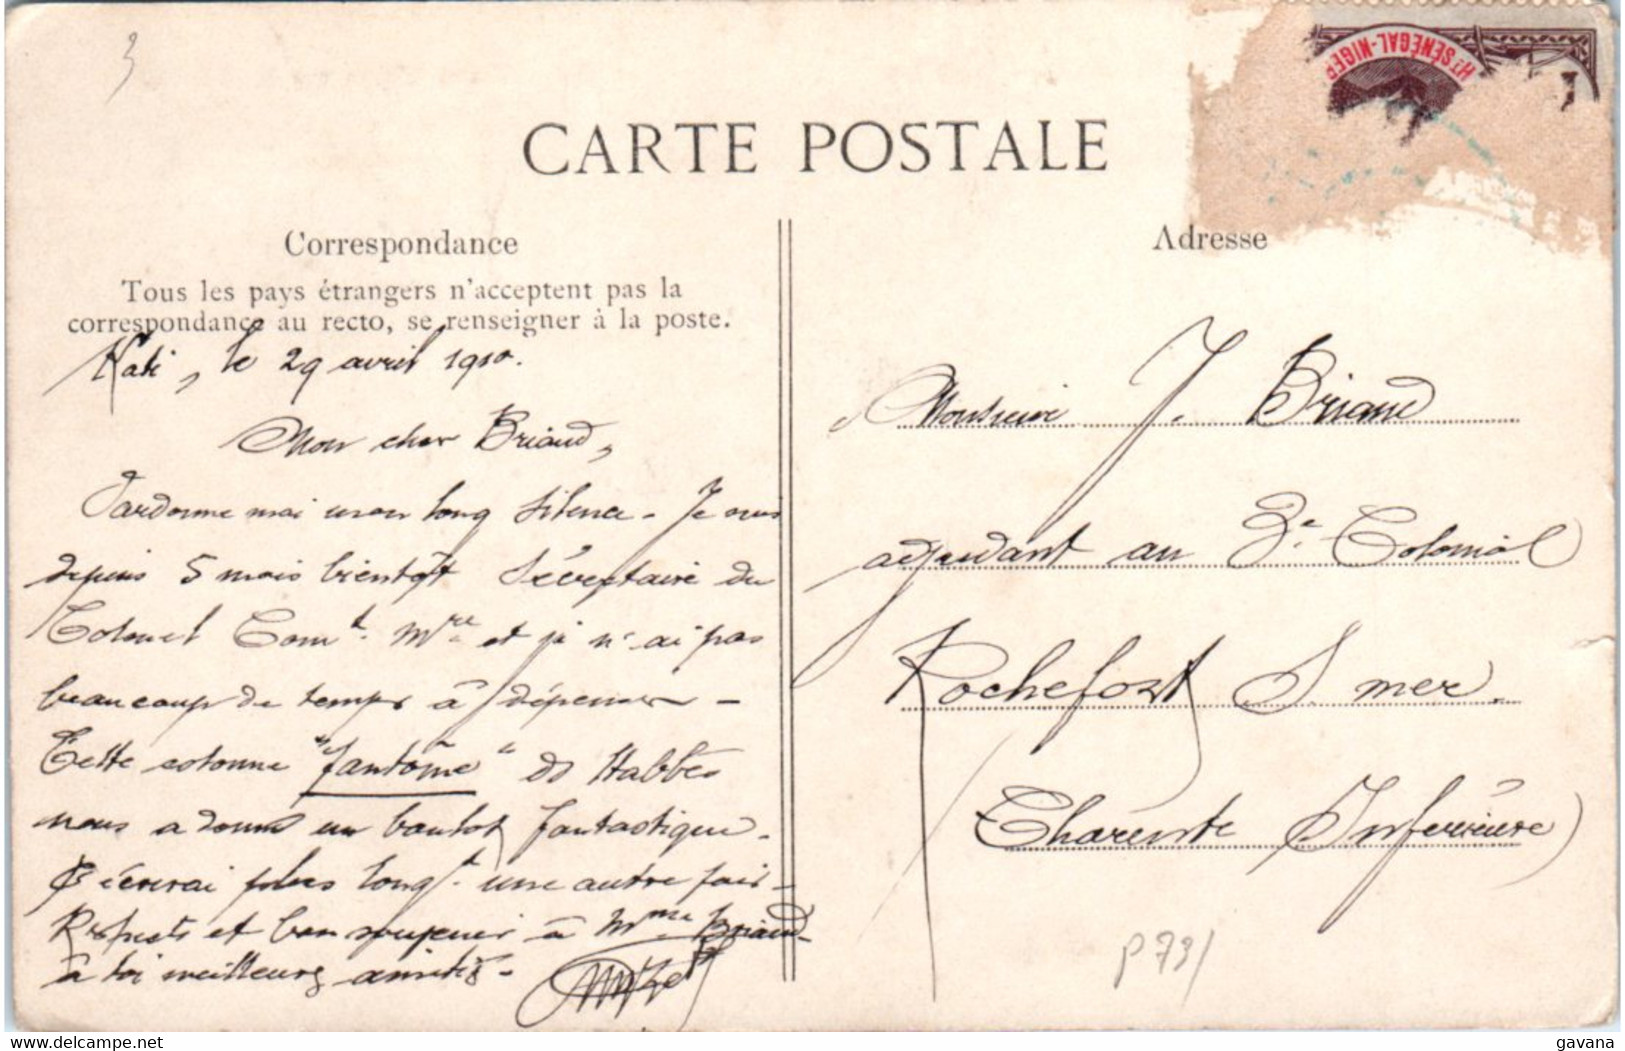 3
CARTE POSTALE
Ht SÉNÉGAL-NIGER
Correspondance
Tous les pays étrangers n'acceptent pas la
correspondance au recto, se renseigner à la poste.
Kati, le 29 avril 1910.
Mon cher Briaud,
Pardonne moi mon long silence - Je suis
depuis 5 mois bientôt Secrétaire du
Colonel Comt. Mre et je n'ai pas
beaucoup de temps à dépenser -
Cette colonne "fantôme" des Habbés
nous a donné un boulot fantastique.
T'écrirai plus longt. une autre fois -
Respects et bon souvenir à Mme Briaud -
à toi meilleures amitiés -
Adresse
Monsieur J. Briaud
adjudant au 3e Colonial
Rochefort S. mer.
Charente Inférieure)
P 731
gavana